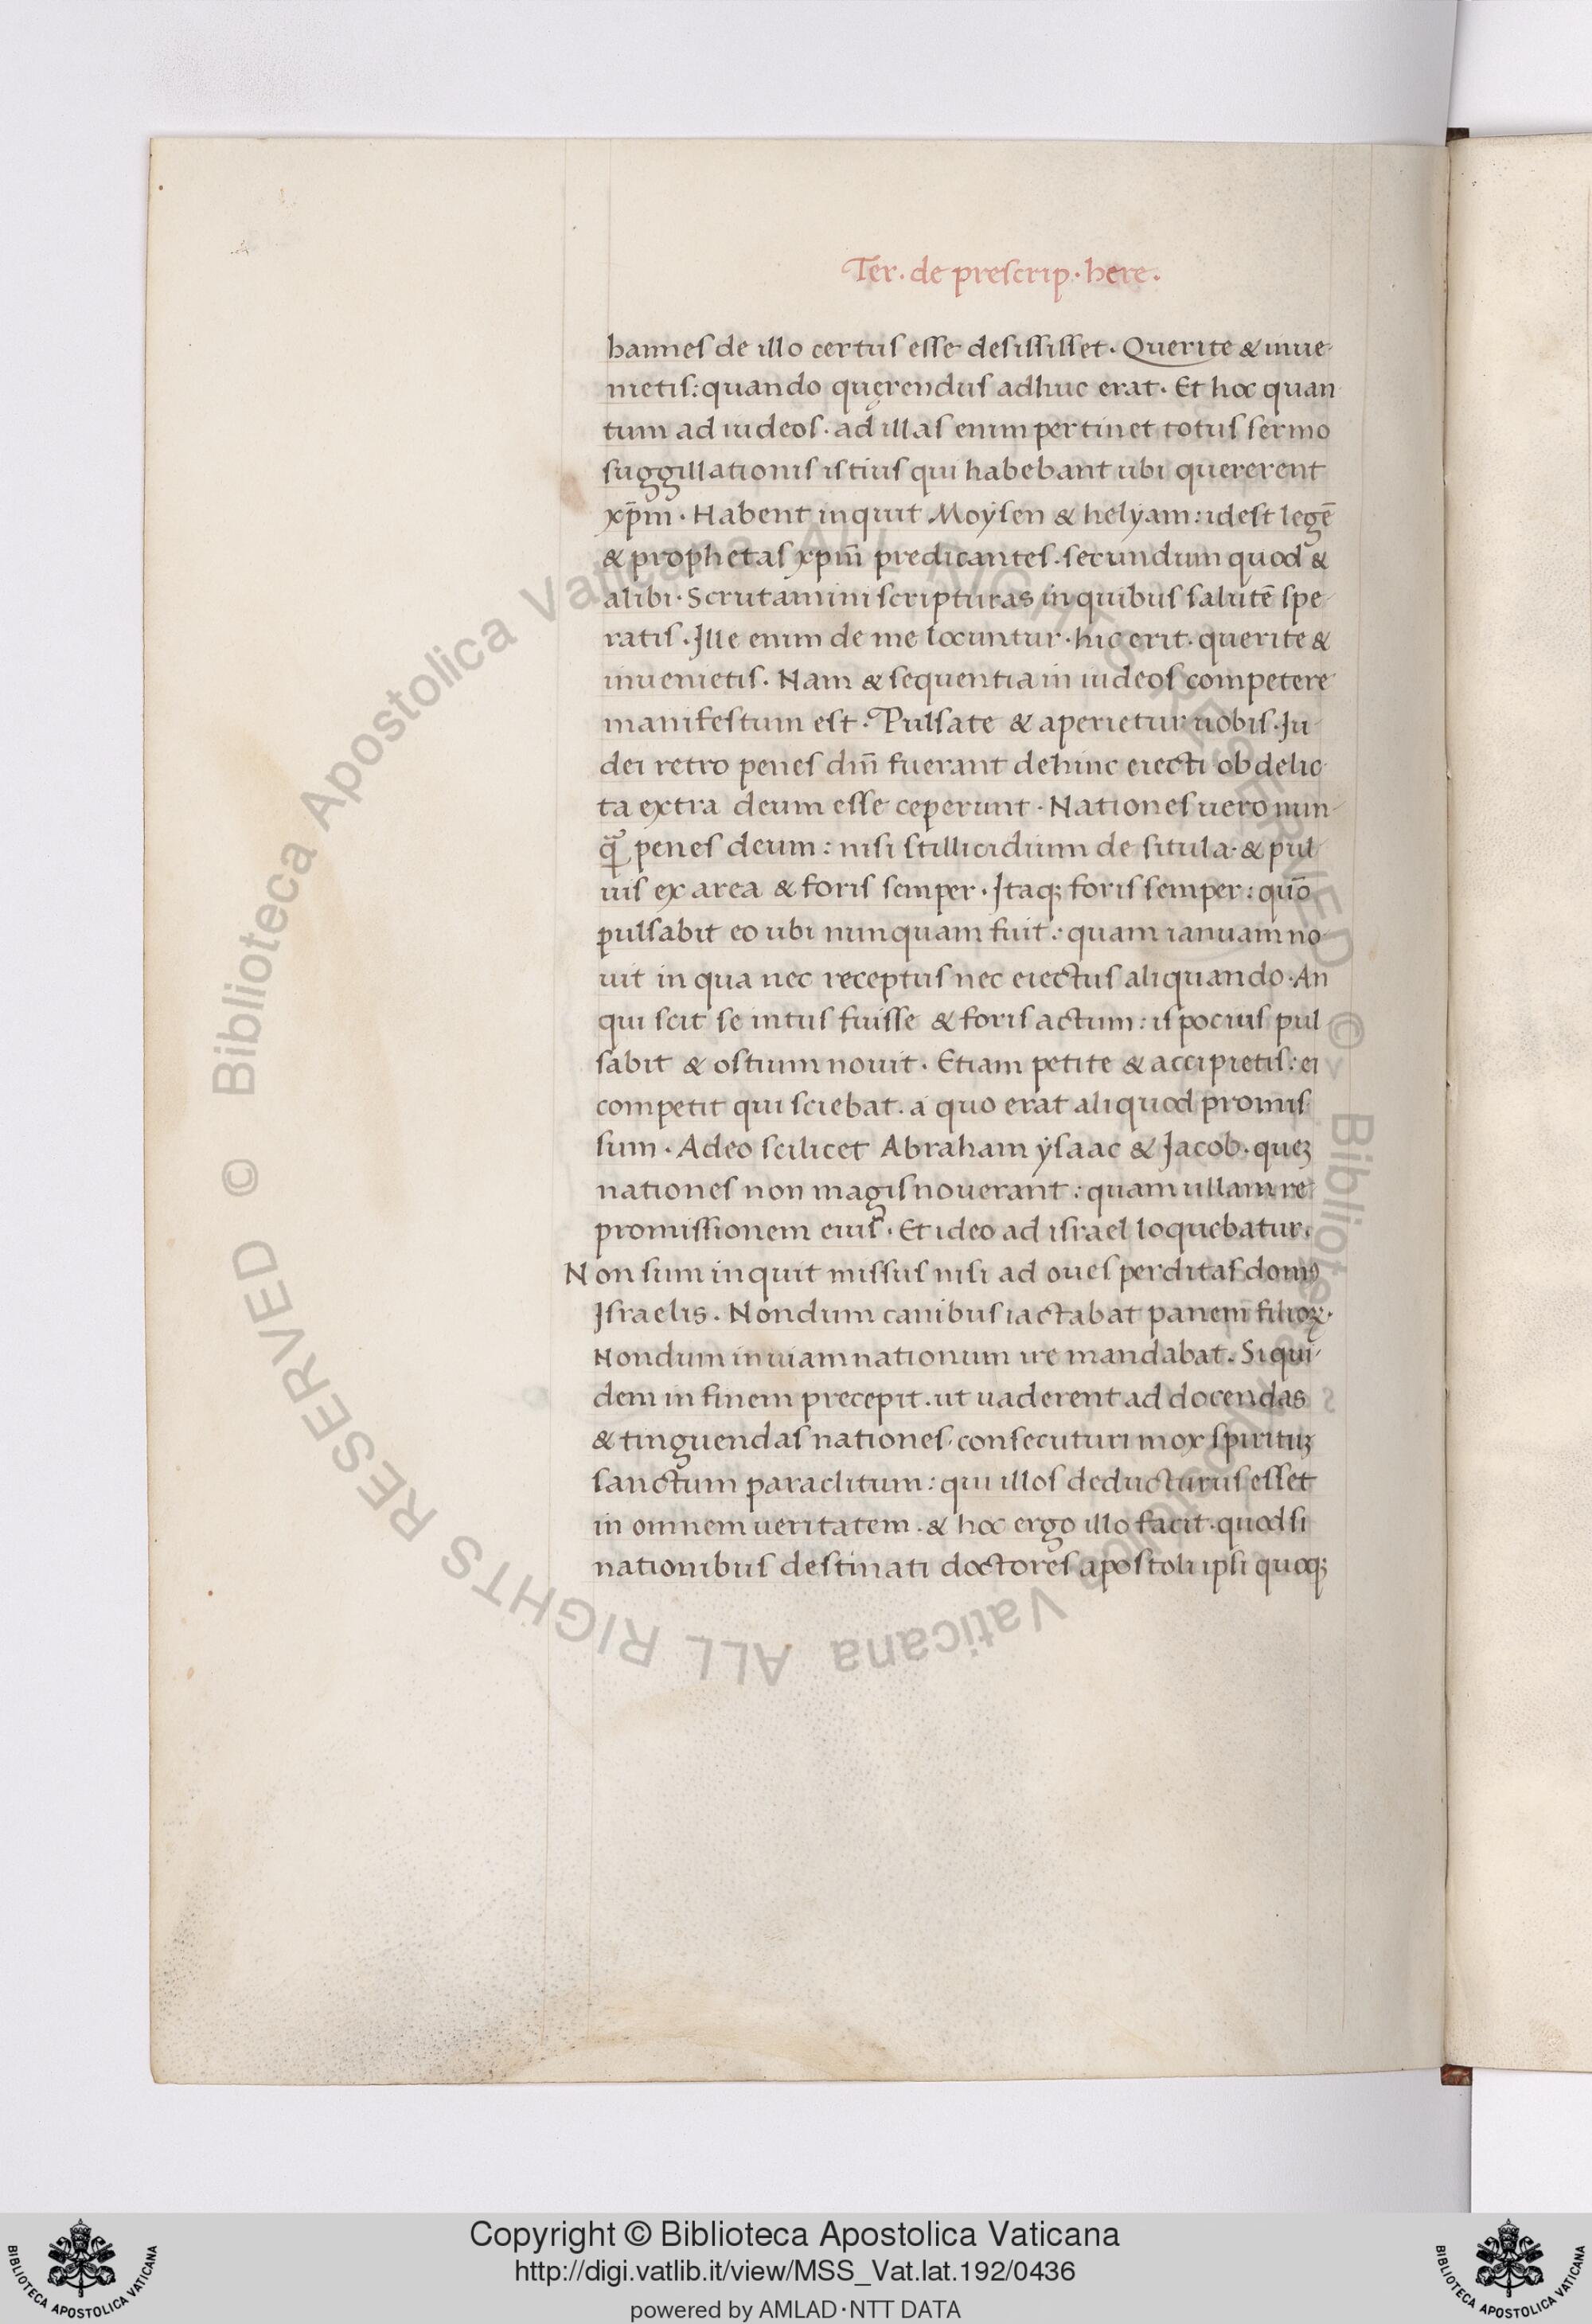 Ter. de prescrip. here.
hannes de illo certus esse desisisset. Querite & inue-
nietis: quando quęrendus adhuc erat. Et hoc quan
tum ad iudeos. ad illas enim pertinet totus sermo
suggillationis istius qui habebant ubi quererent
xp̄m. Habent inquit Moÿsen & helyam: idest legē
& prophetas xpm̄ predicantes. secundum quod &
alibi. Scrutamini scripturas in quibus salutē spe-
ratis. Ille enim de me locuntur. hic erit. querite &
inuenietis. Nam & sequentia in iudeos competere
manifestum est. Pulsate & aperietur uobis. Iu-
dei retro penes dm̄ fuerant dehinc eiecti ob delic-
ta extra deum esse ceperunt. Nationes uero nun-
q̄ꝫ penes deum: nisi stillicidium de situla. & pul-
uis ex area & foris semper. Itaqꝫ foris semper: quō
pulsabit eo ubi nunquam fuit: quam ianuam no-
uit in qua nec receptus nec eiectus aliquando. An
qui scit se intus fuisse & foris actum: is pocius pul
sabit & ostium nouit. Etiam petite & accipietis: ei
competit qui sciebat. a quo erat aliquod promis
sum. A deo scilicet Abraham ÿsaac & Jacob. queꝫ
nationes non magis nouerant: quam ullam re
promissionem eius. Et ideo ad israel loquebatur.
Non sum inquit missus nisi ad oues perditas domꝰ
Israelis. Nondum canibus iactabat panem filioꝝ.
Nondum in uiam nationum ire mandabat. Siqui-
dem in finem precepit. ut uaderent ad docendas
& tinguendas nationes. consecuturi mox spirituꝫ
sanctum paraclitum: qui illos deducturus esset
in omnem ueritatem. & hoc ergo illo facit. quod si
nationibus destinati doctores apostoli ipsi quoqꝫ
© Biblioteca Apostolica Vaticana ALL RIGHTS RESERVED © Biblioteca Apostolica Vaticana ALL RIGHTS RESERVED
Copyright © Biblioteca Apostolica Vaticana
http://digi.vatlib.it/view/MSS_Vat.lat.192/0436
powered by AMLAD·NTT DATA
BIBLIOTECA APOSTOLICA VATICANA
BIBLIOTECA APOSTOLICA VATICANA